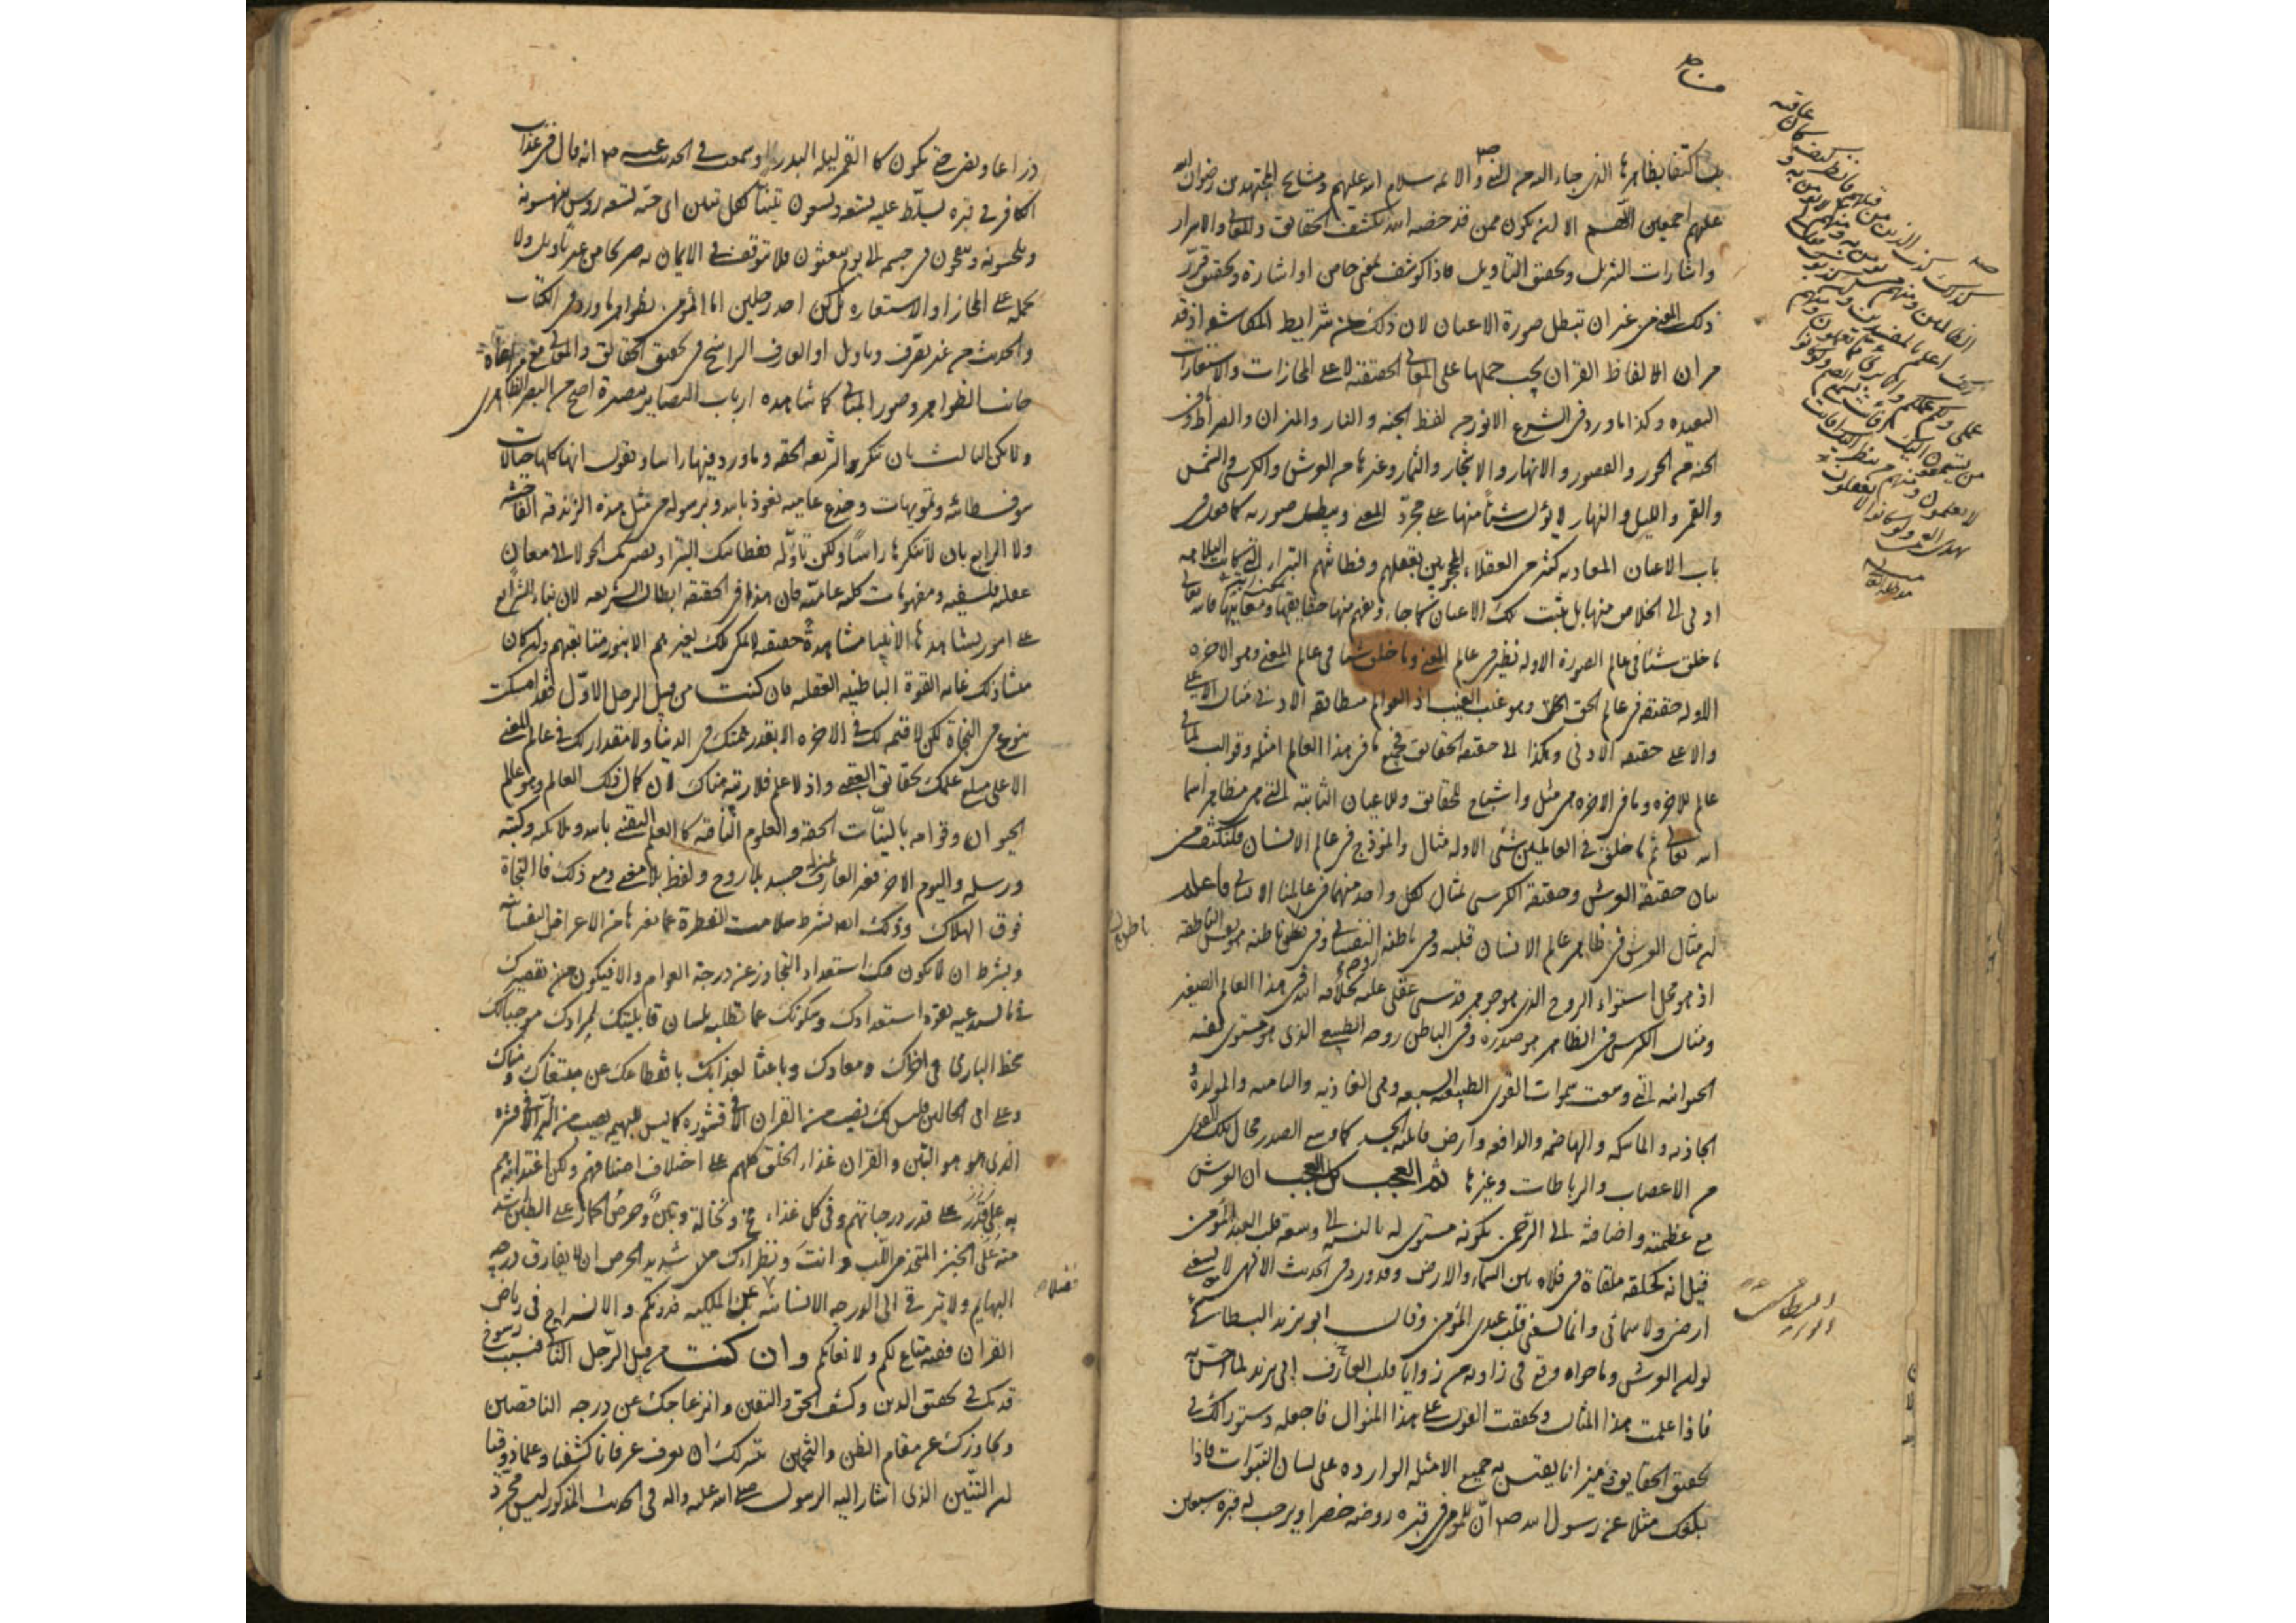 بل اكتفا بظاهرها الذي جاء اليه من النبي والائمه سلام الله عليهم ومشايخ المجتهدين رضوان الله
عليهم اجمعين اللهم الا ان يكون ممن قد خصه الله بكشف الحقايق والمعاني والاسرار
واشارات التنزيل وتحقيق التاويل فاذا كوشف بمعنى خاص او اشارة وتحقيق قرر
ذلك المعنى من غير ان تبطل صورة الاعيان لان ذلك من شرايط المكاشفه اذ قد
مر ان الالفاظ القران يجب حملها على المعاني الحقيقيه لا على المجازات والاستعارات
البعيده وكذا ما ورد في الشرع الانور من لفظ الجنه والنار والميزان والصراط وما في
الجنه من الحور والقصور والانهار والاشجار والثمار وغيرها من العرش والكرسي والشمس
والقمر والليل والنهار لا يؤل شيئا منها على مجرد المعنى ويبطل صورته كما فعل في
باب الاعيان المعاديه كثير من العقلاء المحجوبين بعقلهم وفطانتهم البتراء التي كانت البلاهه
ادنى الى الخلاص منها بل يثبت تلك الاعيان كما جاء ويفهم منها حقايقها ومعانيها فالله تعالى
ما خلق شيئا في عالم الصورة الا وله نظير في عالم المعنى وما خلق شيئا في عالم المعنى وهو الاخره
الا وله حقيقه في عالم الحق وهو غيب الغيب اذ العوالم مطابقه الادنى مثال الاعلى
والاعلى حقيقه الادنى وهكذا الى حقيقه الحقايق فجميع ما في هذا العالم امثله وقوالب لما في
عالم الاخره وما في الاخره هي مثل واشباح للحقايق والاعيان الثابته التي هي مظاهر اسما
الله تعالى ثم ما خلق في العالمين شئ الا وله مثال وانموذج في عالم الانسان فلنكتف من
بيان حقيقة العرش وحقيقة الكرسي بمثال لكل واحد منهما في عالمنا الانساني فاعلم
ان مثال العرش في ظاهر عالم الانسان قلبه وفي باطنه روحه النفساني وفي باطن باطنه نفسه الناطقه
اذ هو محل استواء الروح الذي هو جوهر قدسي عقلي عليه بخلافه الله في هذا العالم الصغير
ومثال الكرسي في الظاهر هو صدره وفي الباطن روحه الطبيعي الذي هو مستوى نفسه
الحيوانيه التي وسعت سموات القوى الطبيعيه السبعه وهي الغاذيه والناميه والمولده و
الجاذبه والماسكه والهاضمه والدافعه وارض قابليه الجسد كما وسع الصدر محال تلك القوى
من الاعصاب والرباطات وغيرها ثم العجب كل العجب ان العرش
مع عظمته واضافته الى الرحمن بكونه مستوى له بالنسبه الى وسعه قلب العبد المؤمن
قيل انه كحلقه ملقاة في فلاه بين السماء والارض وقد ورد في الحديث الالهي لا يسعني
ارضي ولا سمائي وانما يسعني قلب عبدي المؤمن وقال ابو يزيد البسطامي
لو ان العرش وما حواه وقع في زاويه من زوايا قلب العارف ابي يزيد لما احس به
فاذا علمت هذا المثال وتحققت القول على هذا المنوال فاجعله دستورا لك في
تحقيق الحقايق وميزانا يقتبس به جميع الامثله الوارده على لسان النبوات فاذا
بلغك مثلا عن رسول الله ص ان للمؤمن في قبره روضه خضرا ويرحب له قبره سبعين
مناص
كذلك كذب الذين من قبلهم فانظر كيف كان عاقبه
الظالمين ومنهم من يؤمن به ومنهم من لا يؤمن به و
ربك اعلم بالمفسدين وان كذبوك فقل لي
عملي ولكم عملكم وانا بري مما تعملون ومنهم
من يستمعون اليك افانت تسمع الصم ولو كانوا
لا يعقلون ومنهم من ينظر اليك افانت
تهدي العمى ولو كانوا لا
ابو يزيد البسطامي
ذراعا ويضئ حتى يكون كالقمر ليله البدر او سمعت في الحديث عنه ص انه قال في عذاب
الكافر في قبره يسلط عليه تسعه وتسعون تنينا لكل تنين اي حيه تسعه روس ينهسونه
ويلحسونه وينفخون في جسمه الى يوم يبعثون فلا تتوقف في الايمان به صريحا من غير تاويل ولا
تحمله على المجاز او الاستعاره بل كن احد رجلين اما المؤمن بظواهر ما ورد في الكتاب
والحديث من غير تصرف وتاويل او العارف الراسخ في تحقيق الحقايق والمعاني مع مراعاة
جانب الظواهر وصور المباني كما شاهده ارباب البصاير ببصيرة اصح من البصر الظاهري
ولا تكن الثالث بان تنكر الشريعه الحقه وما ورد فيها راسا وتقول انها كلها خيالات
سوفسطائيه وتمويهات وخدع عاميه نعوذ بالله وبرسوله من مثل هذه الزندقه الفاحشه
ولا الرابع بان لا تنكرها راسا ولكن تأوله بفطانتك البتراء وبصيرتك الحولاء الى معان
عقليه فلسفيه ومفهومات كليه عاميه فان هذا في الحقيقه ابطال الشريعه لان بناء الشرايع
على امور يشاهدها الانبيا مشاهدة حقيقيه لا يمكن تلك لغيرهم الا بنور متابعتهم وان كان
منشا ذلك غلبه القوة الباطنيه العقليه فان كنت من قبيل الرجل الاول فقد امسكت
بنوع من النجاة لكن لا قيمه لك في الاخره الا بقدر همتك في الدنيا ولا مقدار لك في عالم المعنى
الا على مبلغ علمك بحقايق اليقين واذ لا علم فلا رتبه هناك لان كمال ذلك العالم وهو عالم
الحيوان وقوامه بالنيات الحقه والعلوم الباقيه كالعلم اليقيني بالله وملائكته وكتبه
ورسله واليوم الاخر فغير العارف بمنزله جسد بلا روح ولفظ بلا معنى ومع ذلك فالنجاة
فوق الهلاك وذلك ايضا بشرط سلامت الفطرة عما يغيرها من الاعراض النفسانيه
وبشرط ان لا يكون فيك استعداد التجاوز عن درجه العوام والا فيكون حين تقصيرك
فيما يستدعيه بقوه استعدادك وسكوتك عما تطلبه بلسان قابليتك لمرادك موجبا لك
سخط الباري في اخراك ومعادك وباعثا لعذابك بانقطاعك عن مبتغاك و مناك
وعلى اي الحالين فليس لك نصيب من القران الا في قشوره كما ليس للبهيم نصيب من البر الا في قشره
الذي هو هو التبن والقران غذاء الخلق كلهم على اختلاف اصنافهم ولكن اغتذائهم
به على قدر درجاتهم وفي كل غذاء مخ ونخاله وتبن وحرص الحمار على التبن اشد
منه على الخبز المتخذ من اللب وانت ونظراءك شديد الحرص ان لا يفارق درجه
البهايم ولا يترقى الى الدرجه الانسانيه عن الملكيه فدونكم والانسراح في رياض
القران ففيه متاع لكم ولانعامكم وان كنت من قبيل الرجل الثاني فبسبب رسوخ
قدمك في تحقيق الدين وكشف الحق واليقين وانزعاجك عن درجه الناقصين
وتجاوزك عن مقام الظن والتخمين يتيسر لك ان تعرف عرفانا كشفيا وعلما ذوقيا
ان التنين الذي اشار اليه الرسول صلى الله عليه واله في الحديث المذكور ليس مجرد
فضلا